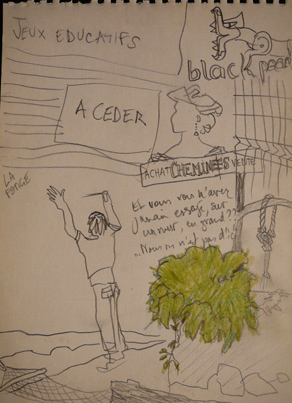 JEUX EDUCATIFS
black pearl
A CEDER
ACHAT CHEMINEES VENTE
LA FORGE
Et vous vous n'avez
jamais essayé, sur
un mur, en grand ??